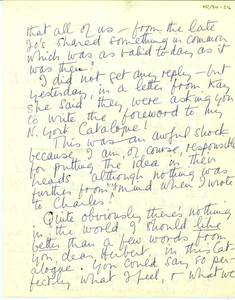 that all of us – from the late
30's shared something in common
which was as valid today as it
was then!
I did not get any reply – but
yesterday, in a letter from Kay
she said they were asking you
to write the foreword to my
N. York Catalogue!
This was an awful shock
because I am, of course, responsible
for putting the idea in their
heads" although nothing was
further from mind when I wrote
to Charles!
Quite obviously there's nothing
in the world I should like
better than a few words from
you, dear Herbert, in this cat-
alogue. You could say so per-
fectly what I feel, or what we